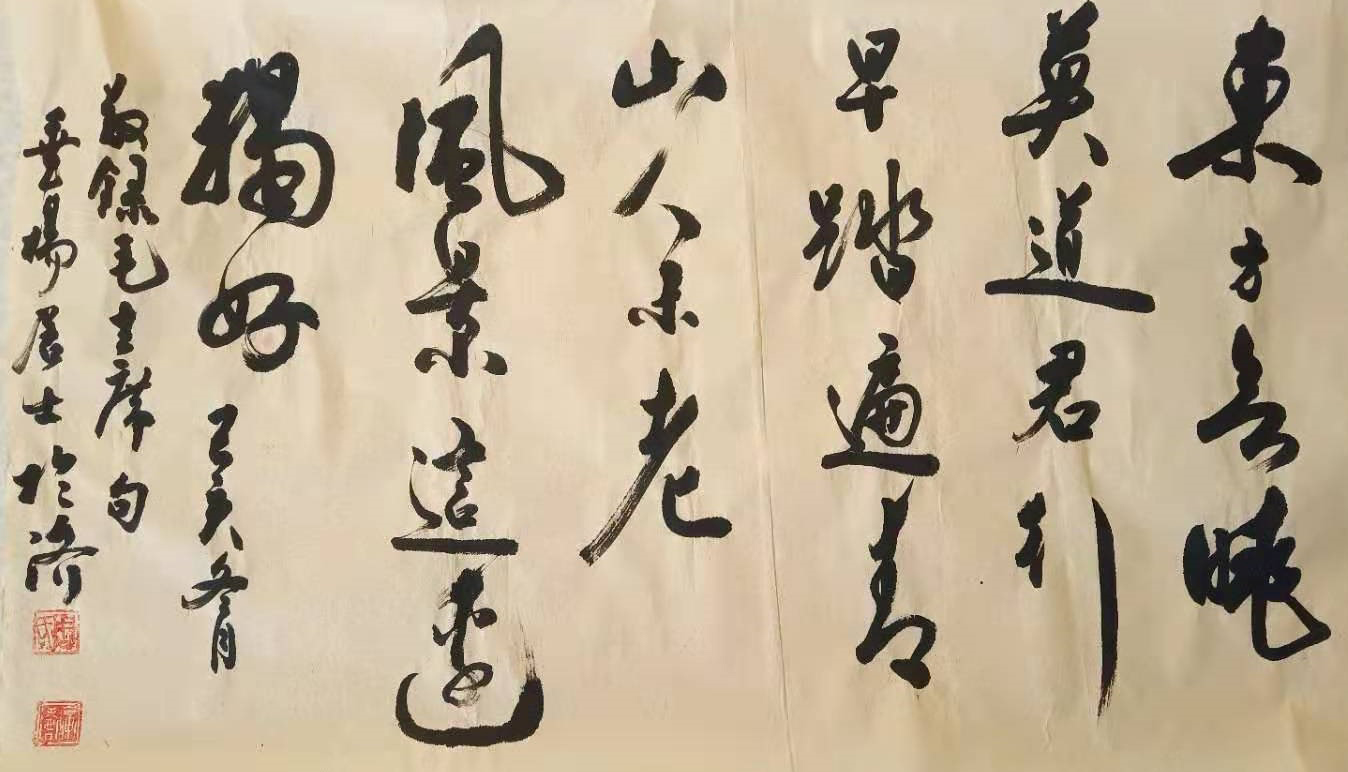 東方欲曉
莫道君行
早踏遍青
山人未老
風景這邊
獨好 己亥冬月
敬錄毛主席句
楊居士於濟